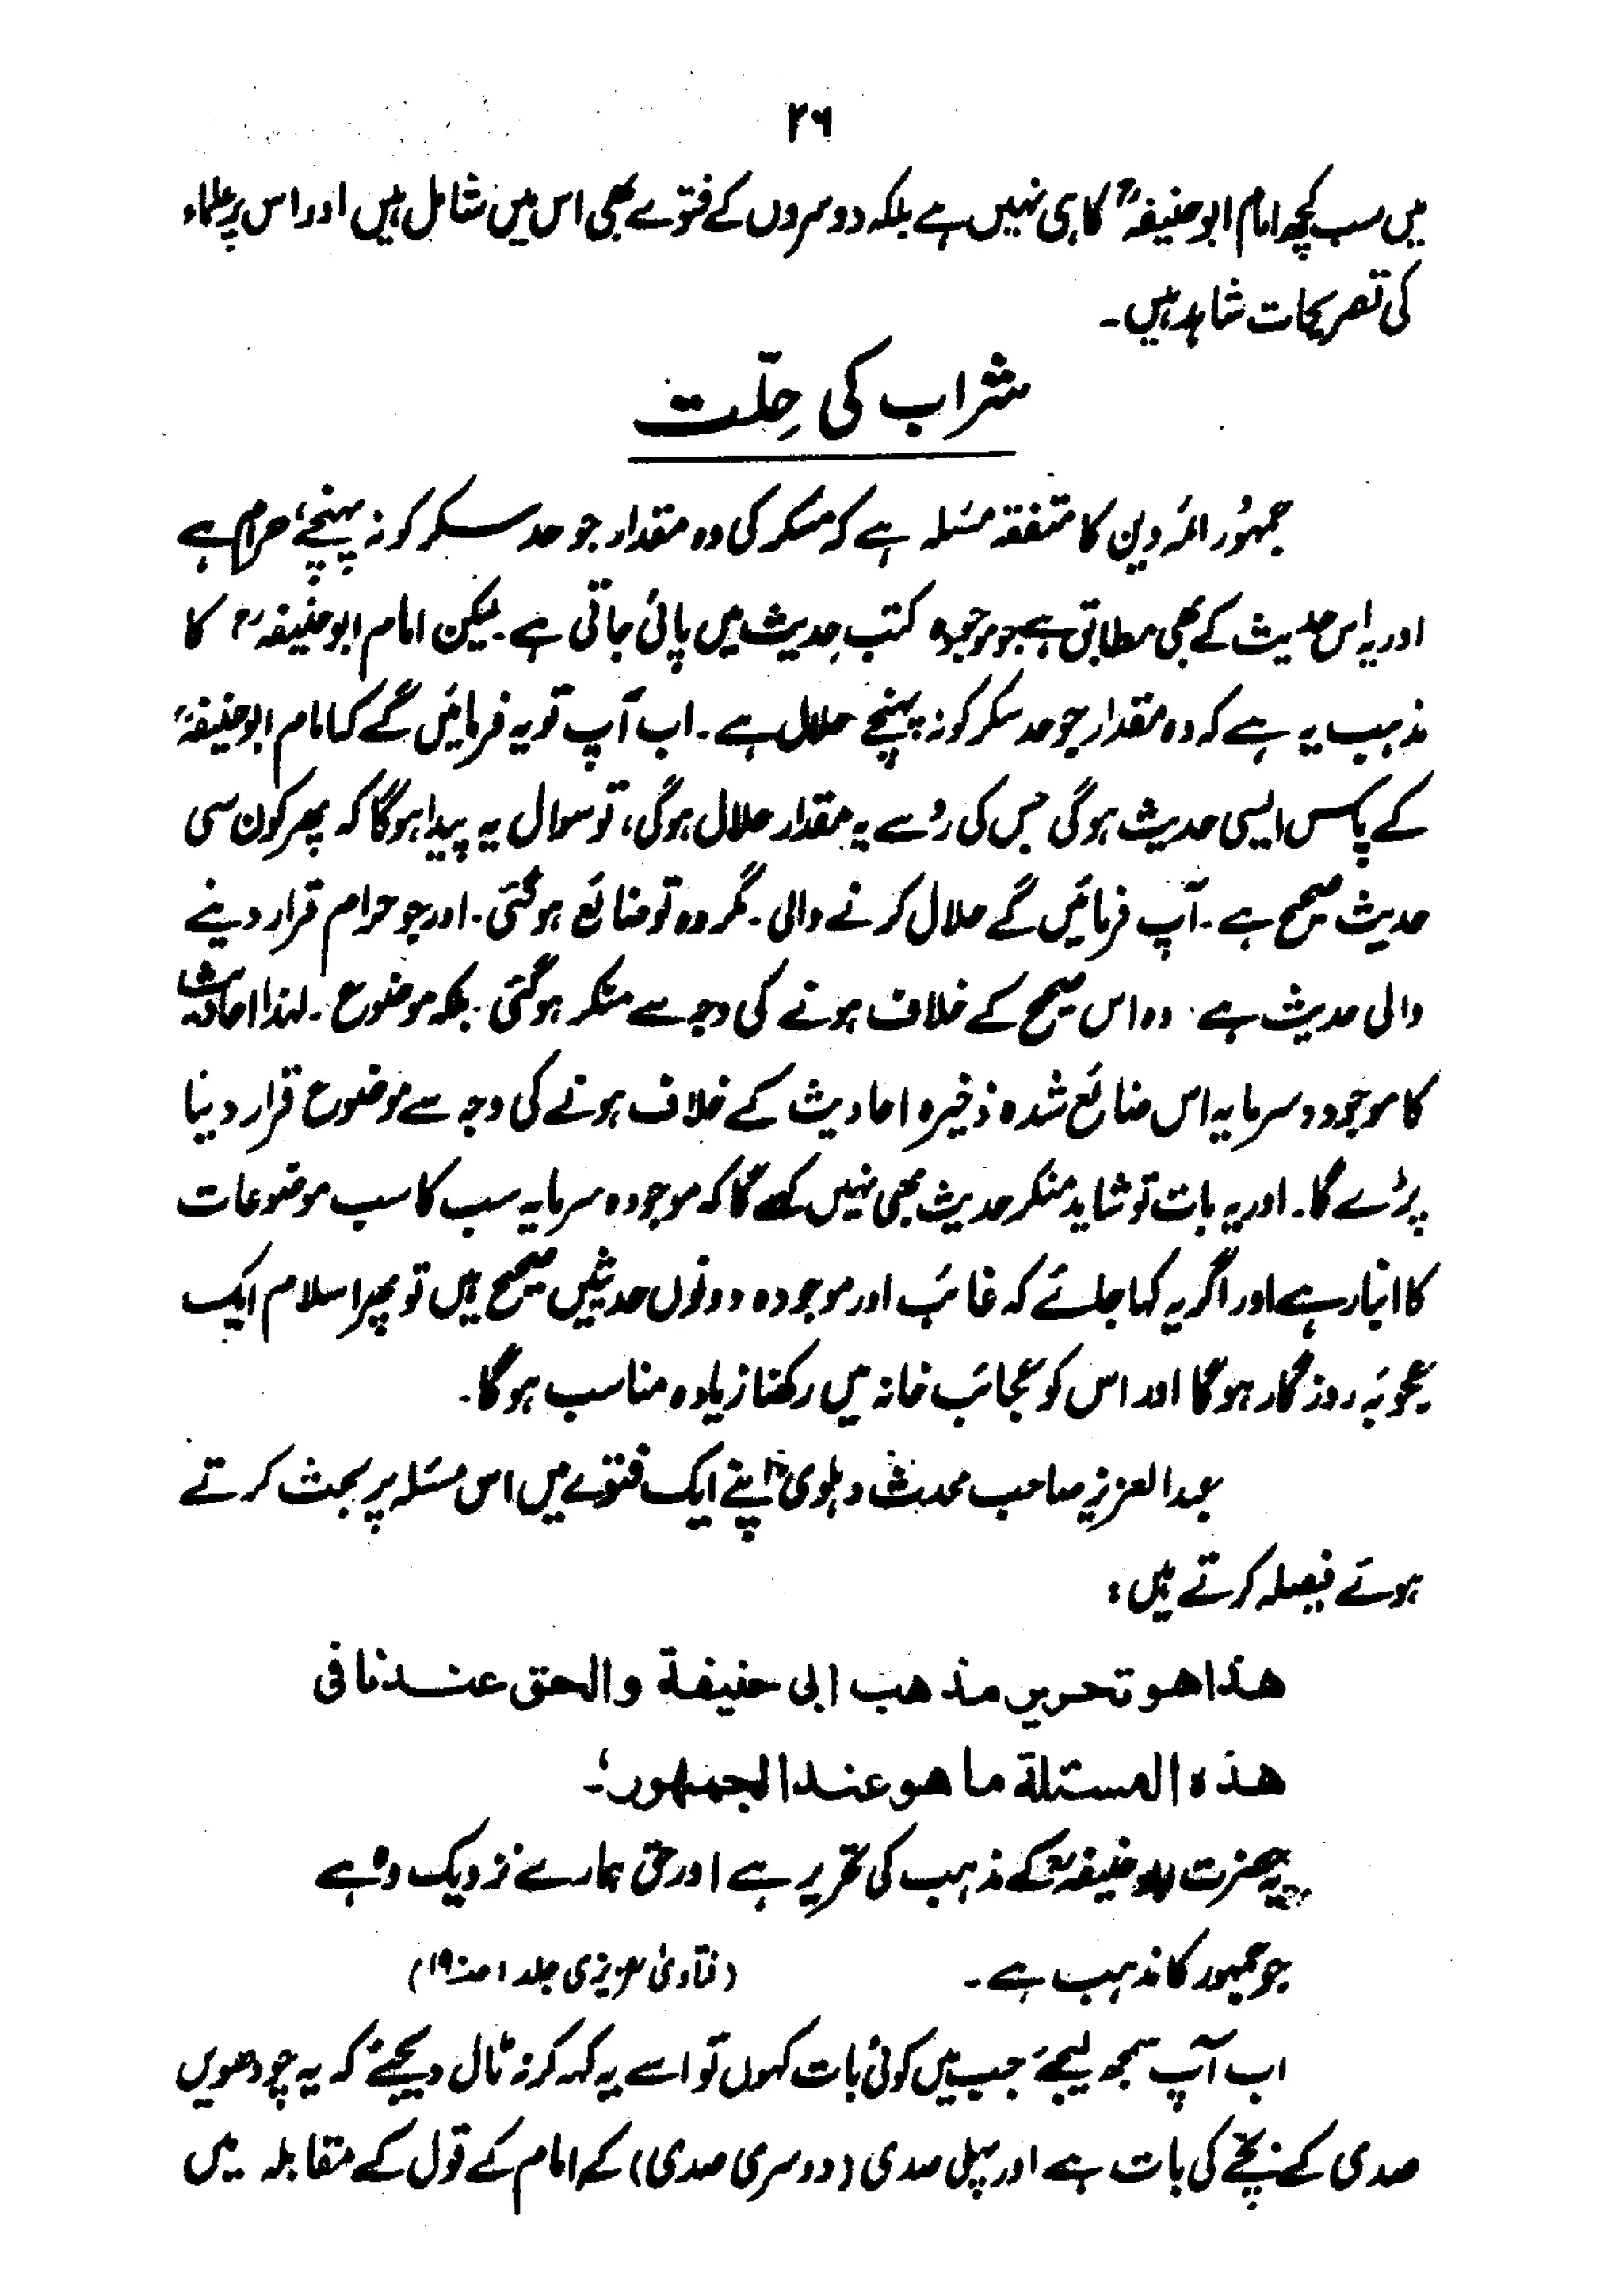 ۲۶
میں سب کچھ امام ابوحنیفہؒ کا ہی نہیں ہے بلکہ دوسروں کے فتوے بھی اس میں شامل ہیں اور اس پر علماء
کی تصریحات شاہد ہیں۔
شراب کی حِلّت
جمہُور ائمہ دین کا متفقہ مسئلہ ہے کہ مسکر کی وہ مقدار جو حد سکر کو نہ پہنچے، حرام ہے
اور یہ اس حدیث کے بھی مطابق ہے جو موجودہ کتب حدیث میں پائی جاتی ہے۔ لیکن امام ابوحنیفہؒ کا
مذہب یہ ہے کہ وہ مقدار جو حد سکر کو نہ پہنچے حلال ہے۔ اب آپ تو یہ فرمائیں گے کہ امام ابوحنیفہؒ
کے پاس ایسی حدیث ہوگی جس کی رُو سے یہ مقدار حلال ہوگی، تو سوال یہ پیدا ہوگا کہ پھر کون سی
حدیث صحیح ہے۔ آپ فرمائیں گے حلال کرنے والی۔ مگر وہ تو ضائع ہوگئی۔ اور جو حرام قرار دینے
والی حدیث ہے۔ وہ اس صحیح کے خلاف ہونے کی وجہ سے منکر ہوگئی۔ بلکہ موضوع۔ لہٰذا احادیث
کا موجودہ سرمایہ اس ضائع شدہ ذخیرہ احادیث کے خلاف ہونے کی وجہ سے موضوع قرار دینا
پڑے گا۔ اور یہ بات تو شاید منکر حدیث بھی نہیں کہے گا کہ موجودہ سرمایہ سب کا سب موضوعات
کا انبار ہے اور اگر یہ کہا جائے کہ غائب اور موجودہ دونوں حدیثیں صحیح ہیں تو پھر اسلام ایک
عجوبۂ روزگار ہوگا اور اس کو عجائب خانہ میں رکھنا زیادہ مناسب ہوگا۔
عبدالعزیز صاحب محدث دہلویؒ اپنے ایک فتوے میں اس مسئلہ پر بحث کرتے
ہوئے فیصلہ کرتے ہیں:
هذا هو تحریر مذهب ابی حنیفة والحق عندنا فی
هذه المسئلة ما هو عند الجمهور؛۔
یہ حضرت ابو حنیفہؒ کے مذہب کی تحریر ہے اور حق ہمارے نزدیک وہ ہے
جو جمہور کا مذہب ہے۔ (فتاویٰ عزیزی جلد ۱ صـ۱۹)
اب آپ سمجھ لیجئے جب میں کوئی بات کہوں تو اسے یہ کہہ کر نہ ٹال دیجئے کہ یہ چودھویں
صدی کے بچے کی بات ہے اور پہلی صدی (دوسری صدی) کے امام کے قول کے مقابلہ میں